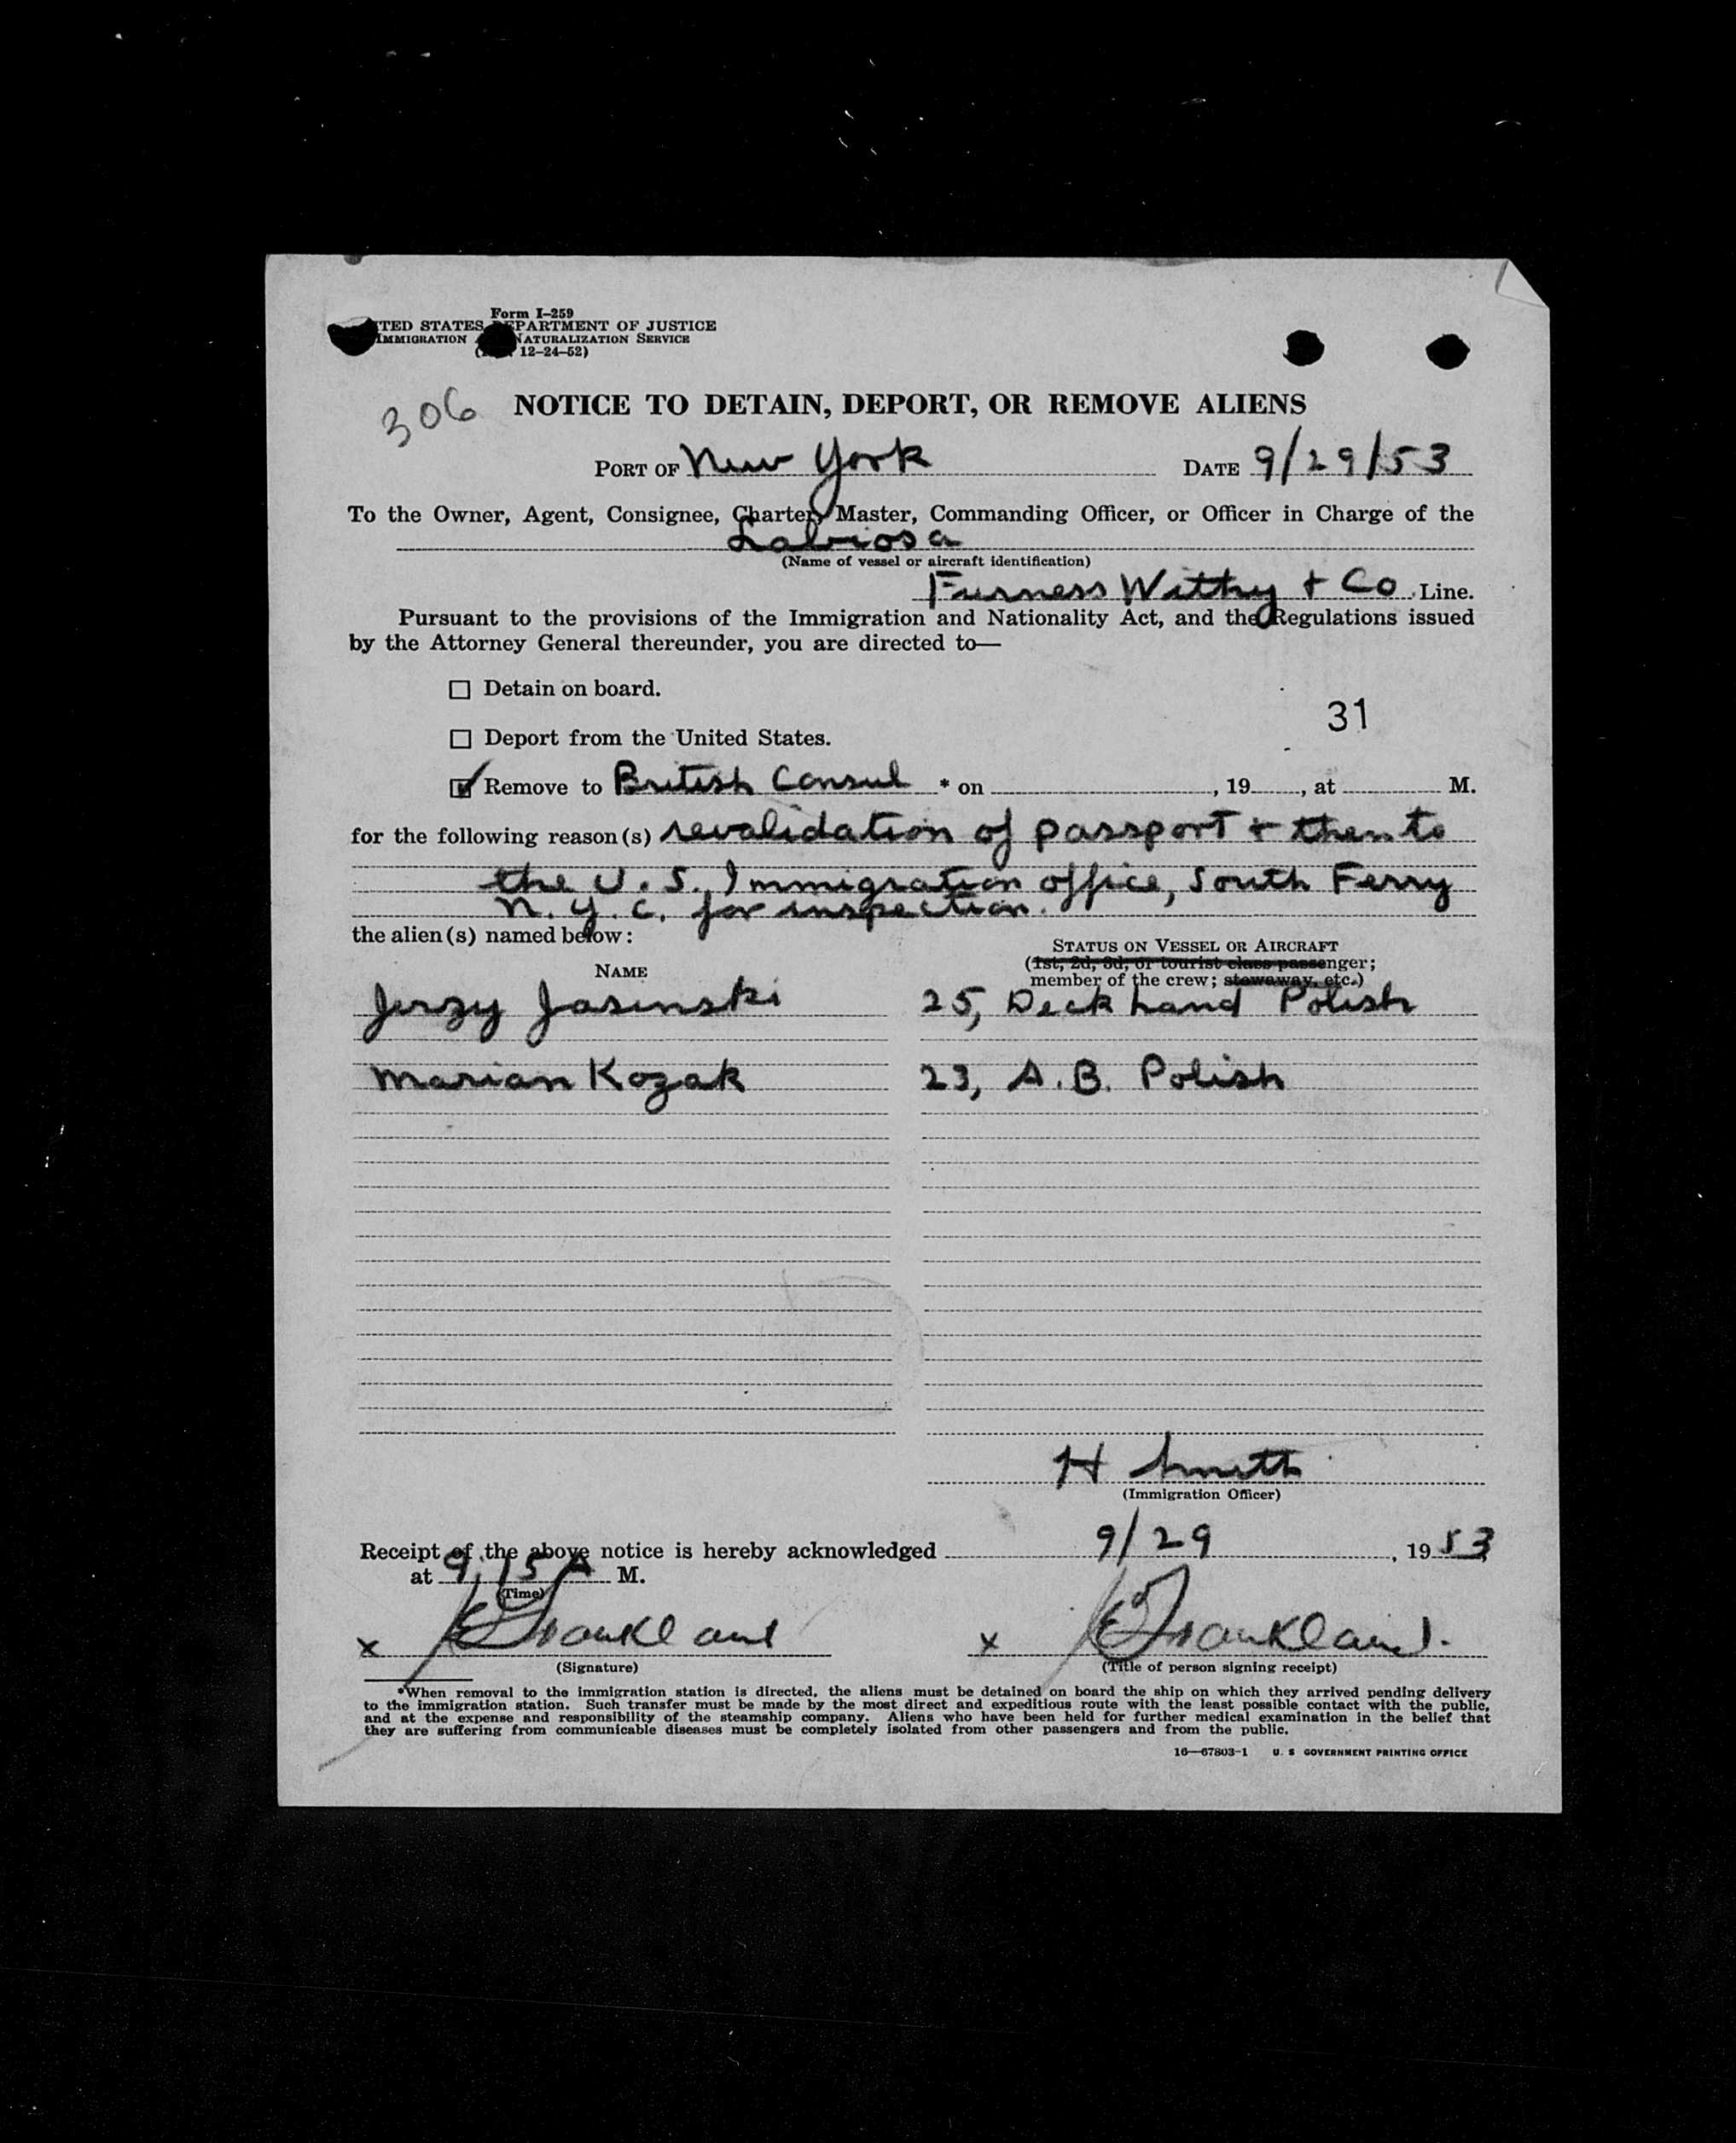 Form I-259
TED STATES DEPARTMENT OF JUSTICE
IMMIGRATION NATURALIZATION SERVICE
12-24-52)
306
NOTICE TO DETAIN, DEPORT, OR REMOVE ALIENS
PORT OF New York DATE 9/29/53
To the Owner, Agent, Consignee, Charter, Master, Commanding Officer, or Officer in Charge of the
Labiosa
(Name of vessel or aircraft identification)
Furness Withy + Co Line.
Pursuant to the provisions of the Immigration and Nationality Act, and the Regulations issued
by the Attorney General thereunder, you are directed to—
☐ Detain on board.
31
☐ Deport from the United States.
☑ Remove to British Consul * on , 19 , at M.
for the following reason(s) revalidation of passport + then to
the U.S. Immigration office, South Ferry
N.Y.C. for inspection.
the alien(s) named below:
STATUS ON VESSEL OR AIRCRAFT
NAME
(1st, 2d, 3d, or tourist class passenger;
member of the crew; stowaway, etc.)
Jerzy Jasinski 25, Deck hand Polish
Marian Kozak 23, A.B. Polish
H Smith
(Immigration Officer)
Receipt of the above notice is hereby acknowledged 9/29, 1953
at 9:15 A M.
(Time)
x Frankland x Frankland.
(Signature) (Title of person signing receipt)
*When removal to the immigration station is directed, the aliens must be detained on board the ship on which they arrived pending delivery
to the immigration station. Such transfer must be made by the most direct and expeditious route with the least possible contact with the public,
and at the expense and responsibility of the steamship company. Aliens who have been held for further medical examination in the belief that
they are suffering from communicable diseases must be completely isolated from other passengers and from the public.
16—67803-1 U. S GOVERNMENT PRINTING OFFICE